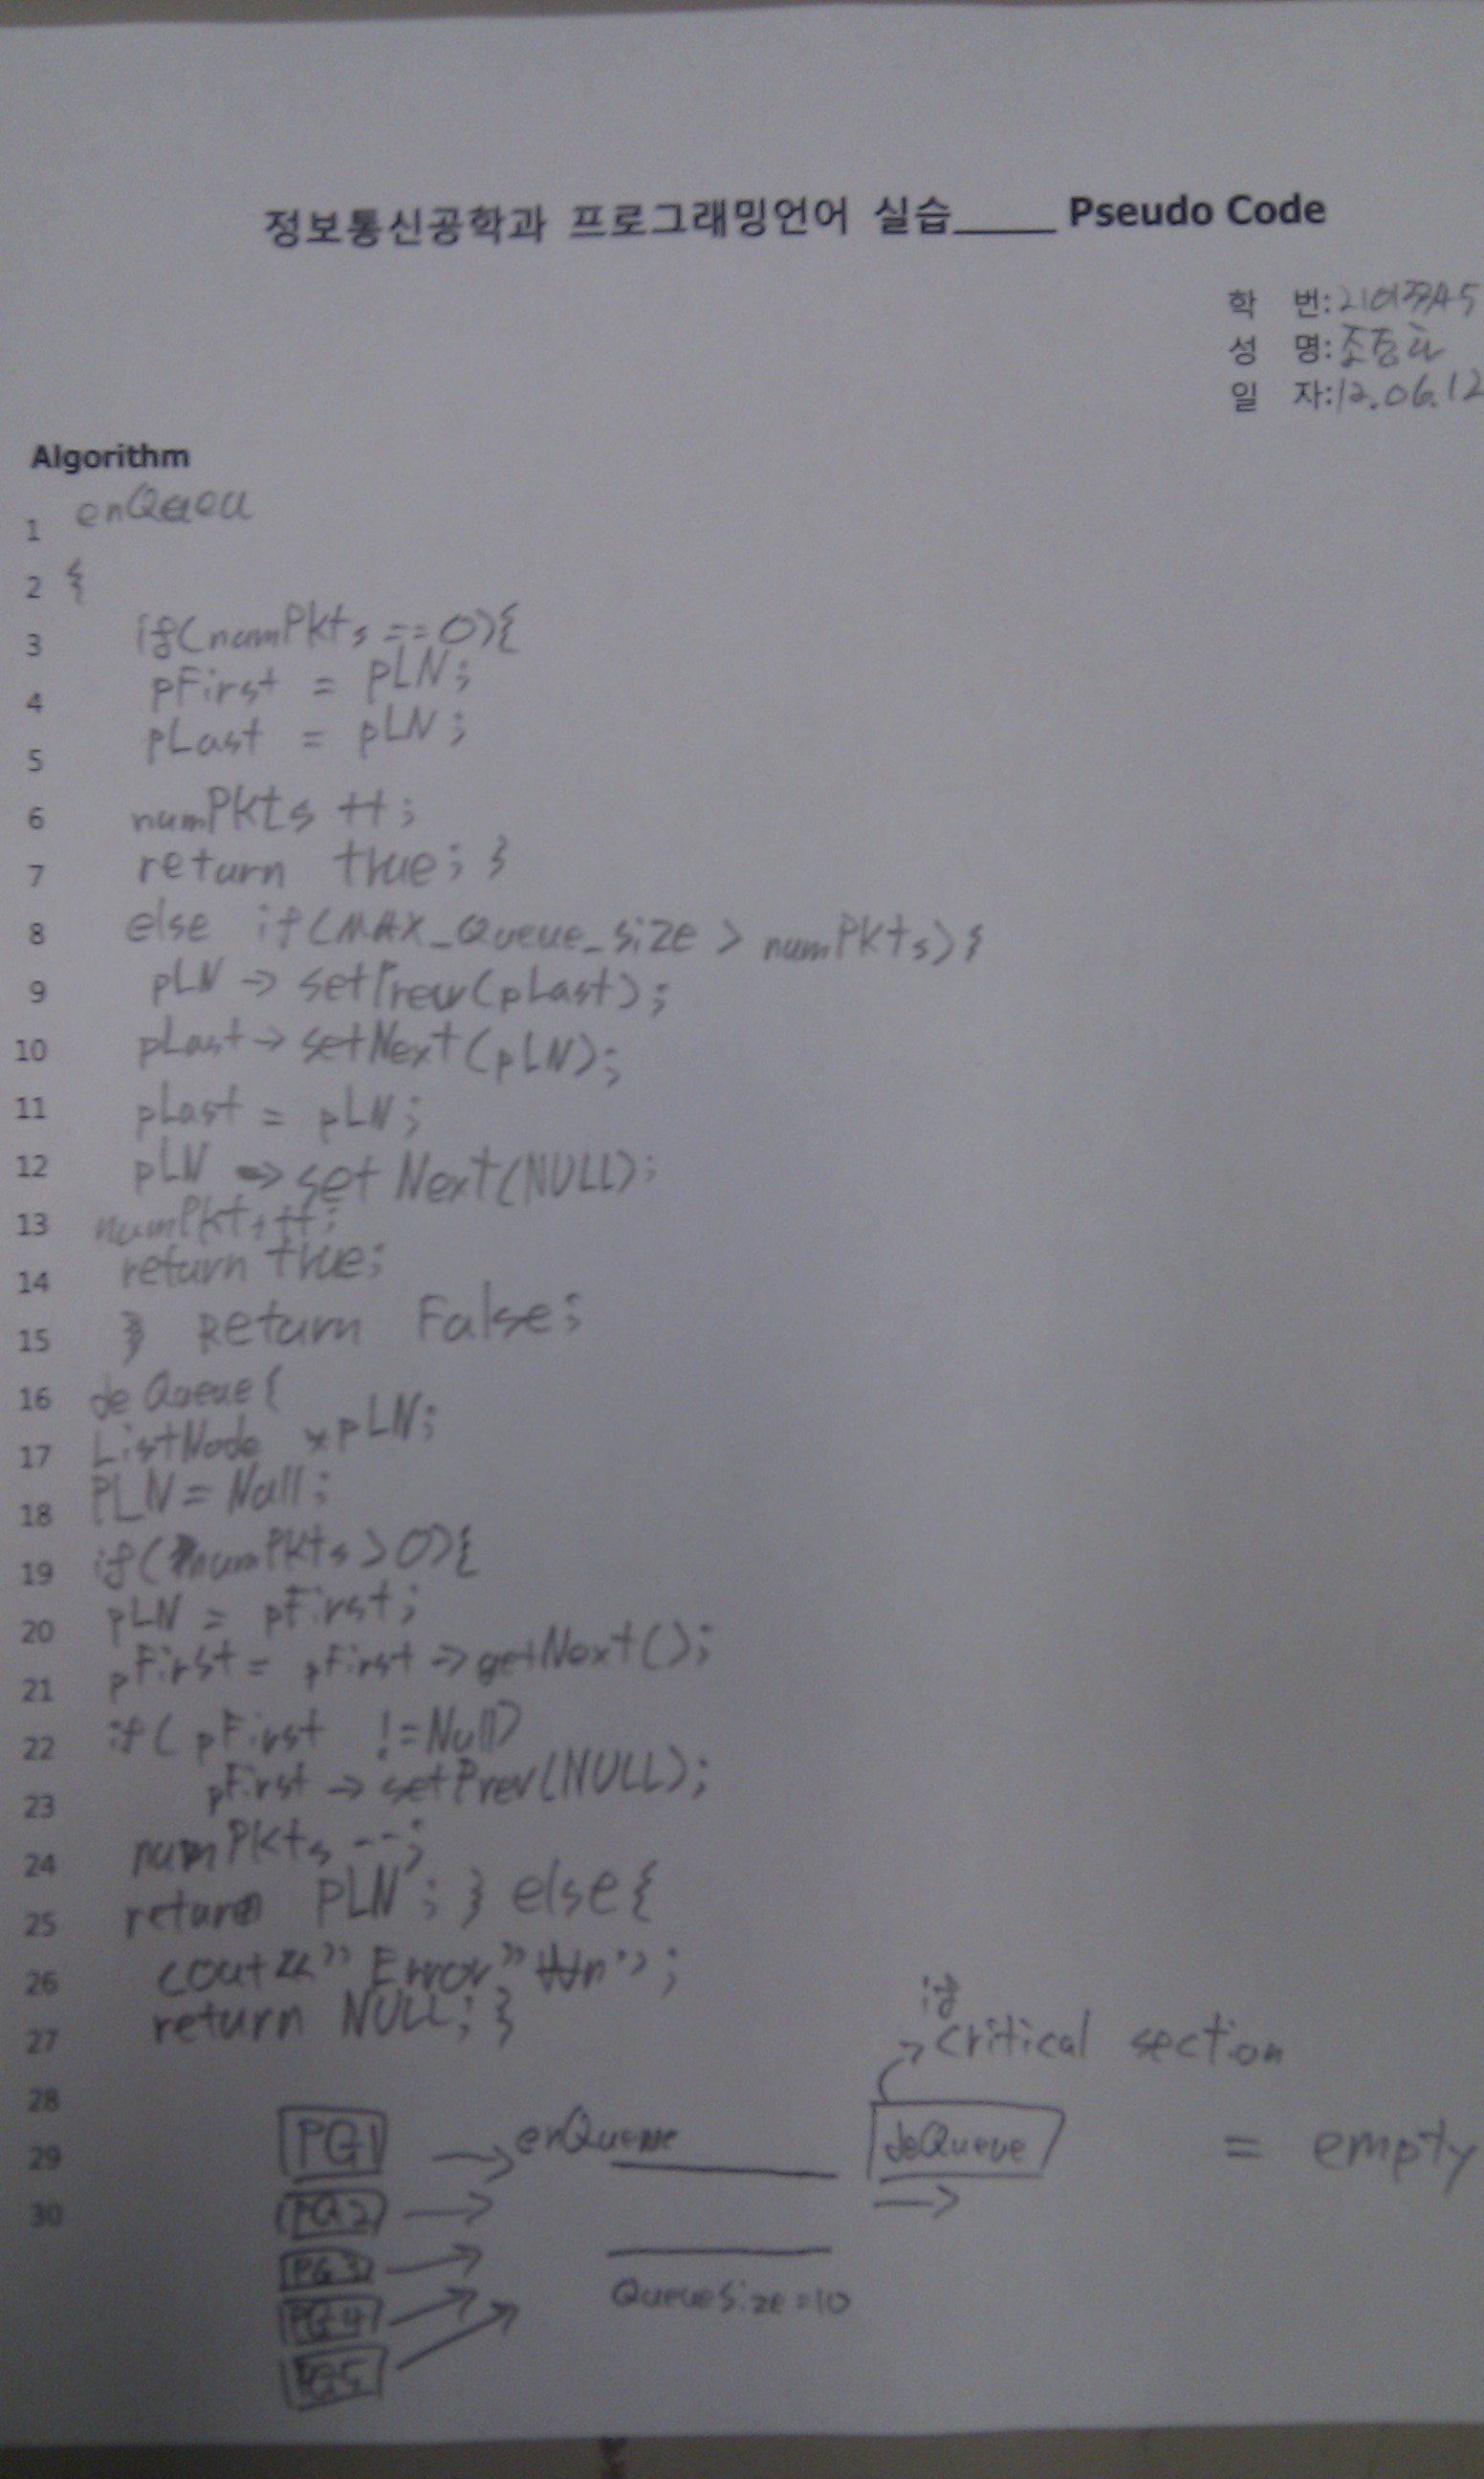 정보통신공학과 프로그래밍언어 실습_____ Pseudo Code
학 번:
성 명:
일 자:12.06.12
Algorithm
1 enQueu
2 {
3 if(numPkts ==0){
4 pFirst = pLN;
5 pLast = pLN;
6 numPkts ++;
7 return true; }
8 else if(MAX_Queue_size > numPkts){
9 pLN -> setPrev(pLast);
10 pLast -> setNext(pLN);
11 pLast = pLN;
12 pLN -> setNext(NULL);
13 numPkts++;
14 return true;
15 } Return False;
16 deQueue{
17 ListNode *pLN;
18 PLN = Null;
19 if(numPkts > 0){
20 pLN = pFirst;
21 pFirst = pFirst -> getNext();
22 if( pFirst != Null)
23 pFirst -> setPrev(NULL);
24 numPkts --;
25 return PLN ; } else {
26 cout<<" Error" ₩n";
27 return NULL; }
if
critical section
28
29 PG1 enQueue deQueue = empty
30 PG2
PG3
QueueSize=10
PG4
PG5